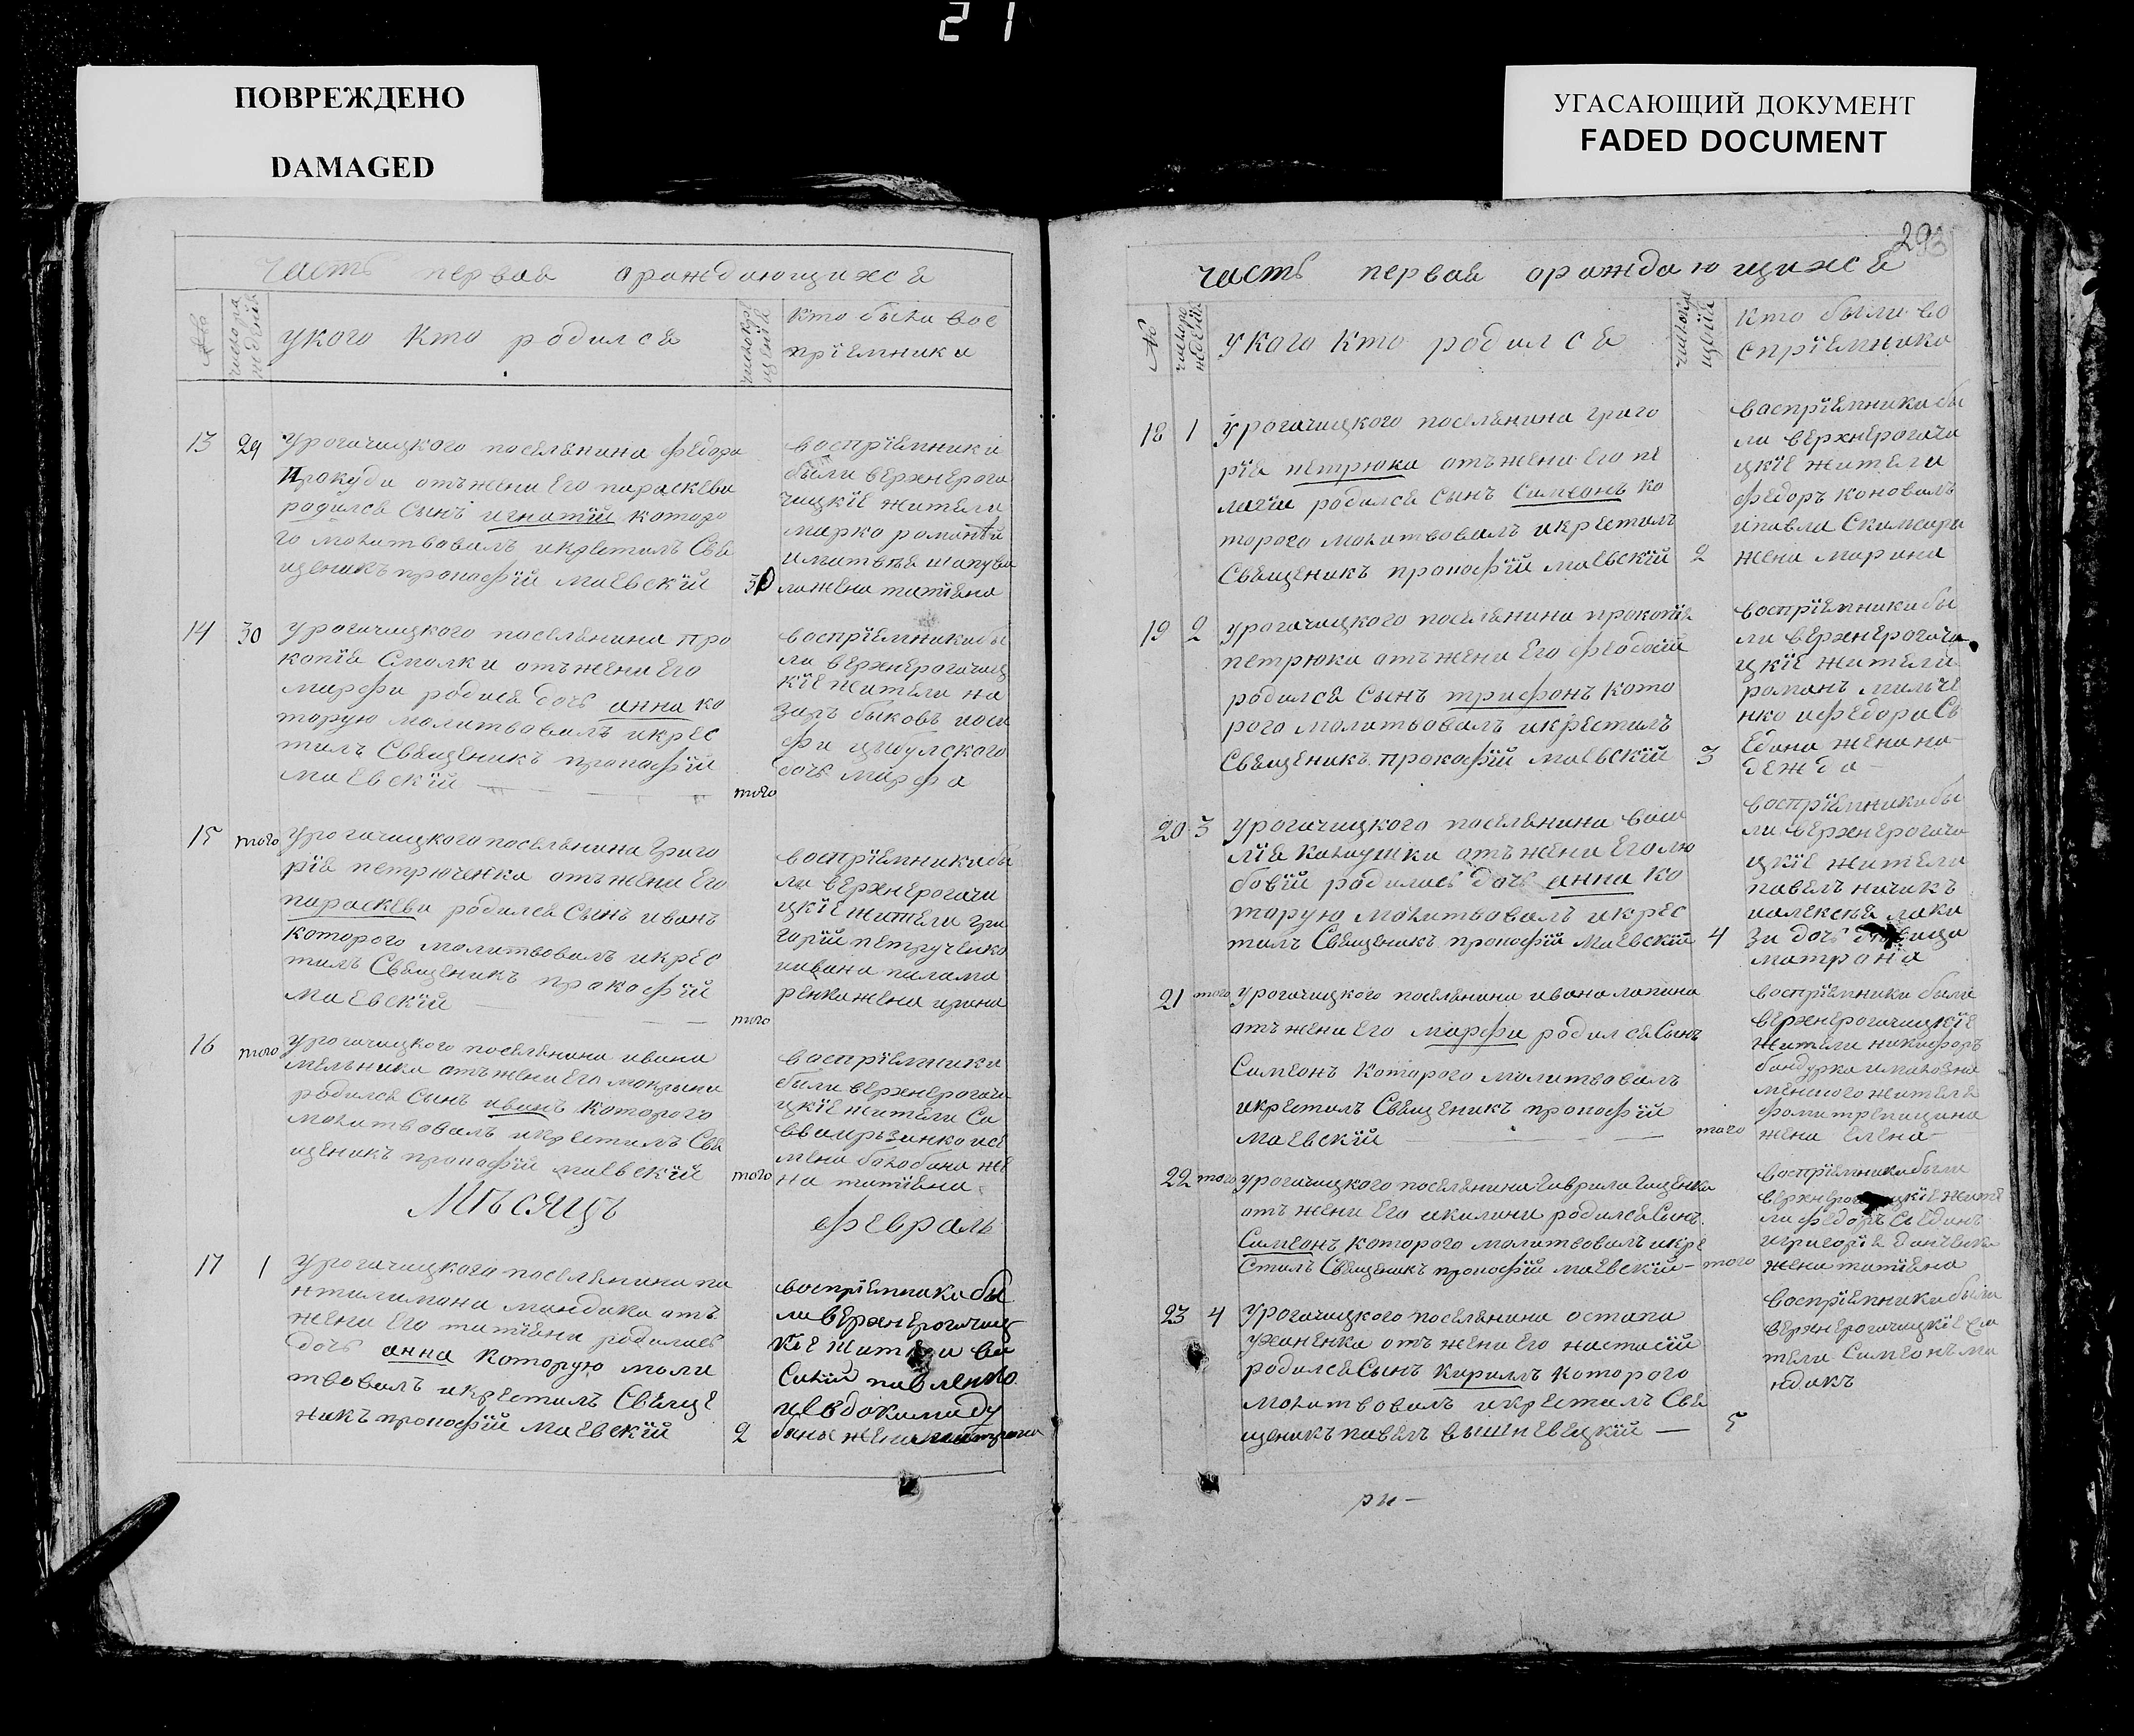 21
ПОВРЕЖДЕНО
DAMAGED
УГАСАЮЩИЙ ДОКУМЕНТ
FADED DOCUMENT
часть первая ораждающихся
№
число ра
ждения
укого кто родился
число кре
щенїя
кто были вос
прїемники
13 29 урогачицкого поселянина федора
Прокуди отъ жени его параскеви
родился Сынъ игнатїй которо
го молитвовалъ икрестилъ Свя
щеникъ прокофїй маевскїй 30
воспрїемники
были верхнерога
чицкїе жители
марко
иматвея шапува
ла жена татїяна
14 30 урогачицкого поселянина про
копїя Смолки отъ жени его
марфи родися дочь анна ко
торую молитвовалъ икрес
тилъ Священикъ прокофїй
маевскїй того
воспрїемники бы
ли верхнерогачиц
кїе жители на
заръ быковъ иоси
фа цыбулского
дочь марфа
15 того урогачицкого поселянина григо
рїя петрюченка отъ жени его
параскеви родился Сынъ иванъ
которого молитвовалъ икрес
тилъ Священикъ прокофїй
маевскїй того
воспрїемники бы
ли верхнерогачи
цкїе жители гри
горїй петрученко
иивана палама
ренка жена ирина
16 того урогачицкого поселянина ивана
мельника отъ жени его макрыни
родился Сынъ иванъ которого
молитвовалъ икрестилъ Свя
щеникъ прокофїй маевскїй того
воспрїемники
были верхнерогачи
цкїе жители Са
ва исе
мена же
на татїяна
Мѣсяцъ февраль
17 1 урогачицкого поселянина па
нтилимона мандика отъ
жени его татїяни родилась
дочь анна которую моли
твовалъ икрестилъ Свяще
никъ прокофїй маевскїй 2
воспрїемники бы
ли верхнерогачиц
кїе жители ва
Силїй павленко
иевдокима ду
жена
293
часть первая ораждающихся
№
число ро
жденїя
укого кто родился
число кре
щенїя
кто были во
спрїемники
18 1 урогачицкого поселянина григо
рїя петрюка отъ жени его пе
лагїи родился Сынъ Симеонъ ко
торого молитвовалъ икрестилъ
Священикъ прокофїй маевскїй 2
воспрїемники бы
ли верхнерогачи
цкїе жители
федоръ коновалъ
ипавла Скимара
жена марина
19 2 урогачицкого поселянина прокопїя
петрюка отъ жени его феодосїи
родился Сынъ трифонъ кото
рого молитвовалъ икрестилъ
Священикъ прокофїй маевскїй 3
воспрїемники бы
ли верхнерогачи
цкїе жители
романъ мильче
нко ифедора Сь
един а жена на
дежда
20 3 урогачицкого поселянина васи
лїя калаушки отъ жени его лю
бовїи родилась дочь анна ко
торую молитвовалъ икрес
тилъ Священикъ прокофїй маевскїй 4
воспрїемники бы
ли верхнерогачи
цкїе жители
павелъ ничикъ
иалексея лаки
зи дочь девица
матрона
21 того урогачицкого поселянина ивана лапина
отъ жени его марфи родился Сынъ
Симеонъ которого молитвовалъ
икрестилъ Священикъ прокофїй
маевскїй того
воспрїемники были
верхнерогачицкїе
жители никифоръ
бандурка ималозна
менского жителя
фоми трепицина
жена елена
22 того урогачицкого поселянина гаврила гащенка
отъ жени его акилини родился Сынъ
Симеонъ которого молитвовалъ икре
Стилъ Священикъ прокофїй маевскїй того
воспрїемники были
верхнерогачицкїе жите
ли федоръ Сьединъ
игригорїя данченка
жена татїяна
23 4 урогачицкого поселянина остапа
уханенка отъ жени его настасїи
родился Сынъ Кириллъ которого
молитвовалъ икрестилъ Свя
щеникъ павелъ вышневецкїй 5
воспрїемники были
верхнерогачицкїе жи
тели Симеонъ ма
ндикъ
ри